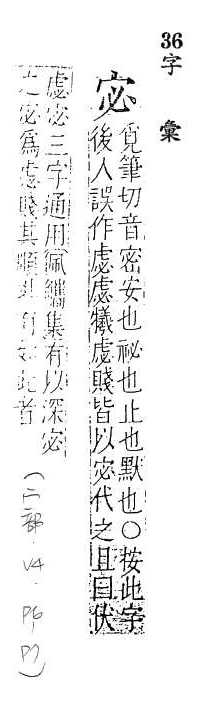 36
字彙
宓 覓筆切音密安也祕也止也默也〇按此字
後人誤作虙虙犧虙賤皆以宓代之且曰伏
虙宓三字通用佩觿集有以深宓
之宓爲虙賤其順非有如此者
(宀部. V4. P6, P7)